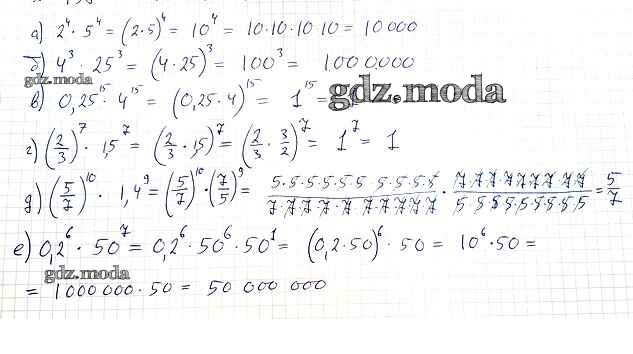 а) 2⁴ · 5⁴ = (2·5)⁴ = 10⁴ = 10·10·10 10 = 10 000
б) 4³ · 25³ = (4·25)³ = 100³ = 1.00 0.000
gdz.moda
в) 0,25¹⁵ · 4¹⁵ = (0,25·4)¹⁵ = 1¹⁵ =
gdz.moda
г) (2/3)⁷ · 1,5⁷ = (2/3 · 1,5)⁷ = (2/3 · 3/2)⁷ = 1⁷ = 1
д) (5/7)¹⁰ · 1,4⁹ = (5/7)¹⁰ · (7/5)⁹ = 5·5·5·5·5·5 5·5·5·5/7·7·7·7·7·7·7·7·7·7 · 7·7·7·7·7·7·7·7·7/5·5·5·5·5·5·5·5·5 = 5/7
е) 0,2⁶ · 50⁷ = 0,2⁶ · 50⁶ · 50¹ = (0,2·50)⁶ · 50 = 10⁶·50 =
gdz.moda
= 1000 000 · 50 = 50 000 000